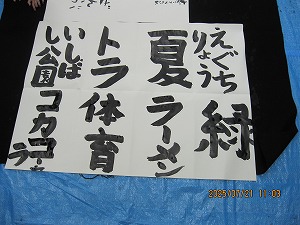 えぐち
りょう
緑
夏
ラーメン
トラ
体育
いしば
し公園
コカコー
ラ
2025/07/21 11:03